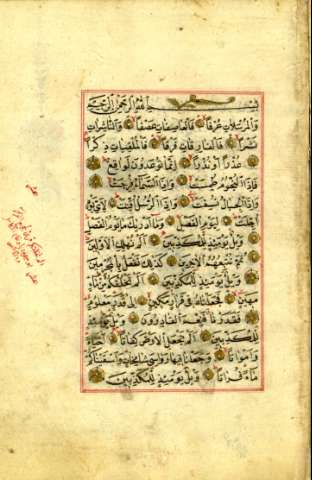 بسم الله الرحمن الرحيم
والمرسلات عرفا فالعاصفات عصفا والناشرات
نشرا فالفارقات فرقا فالملقيات ذكرا
عذرا او نذرا انما توعدون لواقع
فاذا النجوم طمست واذا السماء فرجت
واذا الجبال نسفت واذا الرسل اقتت لاى يوم
اجلت ليوم الفصل وما ادريك ما يوم الفصل
ويل يومئذ للمكذبين الم نهلك الاولين
ثم نتبعهم الاخرين كذلك نفعل بالمجرمين
ويل يومئذ للمكذبين الم نخلقكم من ماء
مهين فجعلناه فى قرار مكين الى قدر معلوم
فقدرنا فنعم القادرون ويل يومئذ
للمكذبين الم نجعل الارض كفاتا احياء
وامواتا وجعلنا فيها رواسى شامخات واسقيناكم
ماء فراتا ويل يومئذ للمكذبين